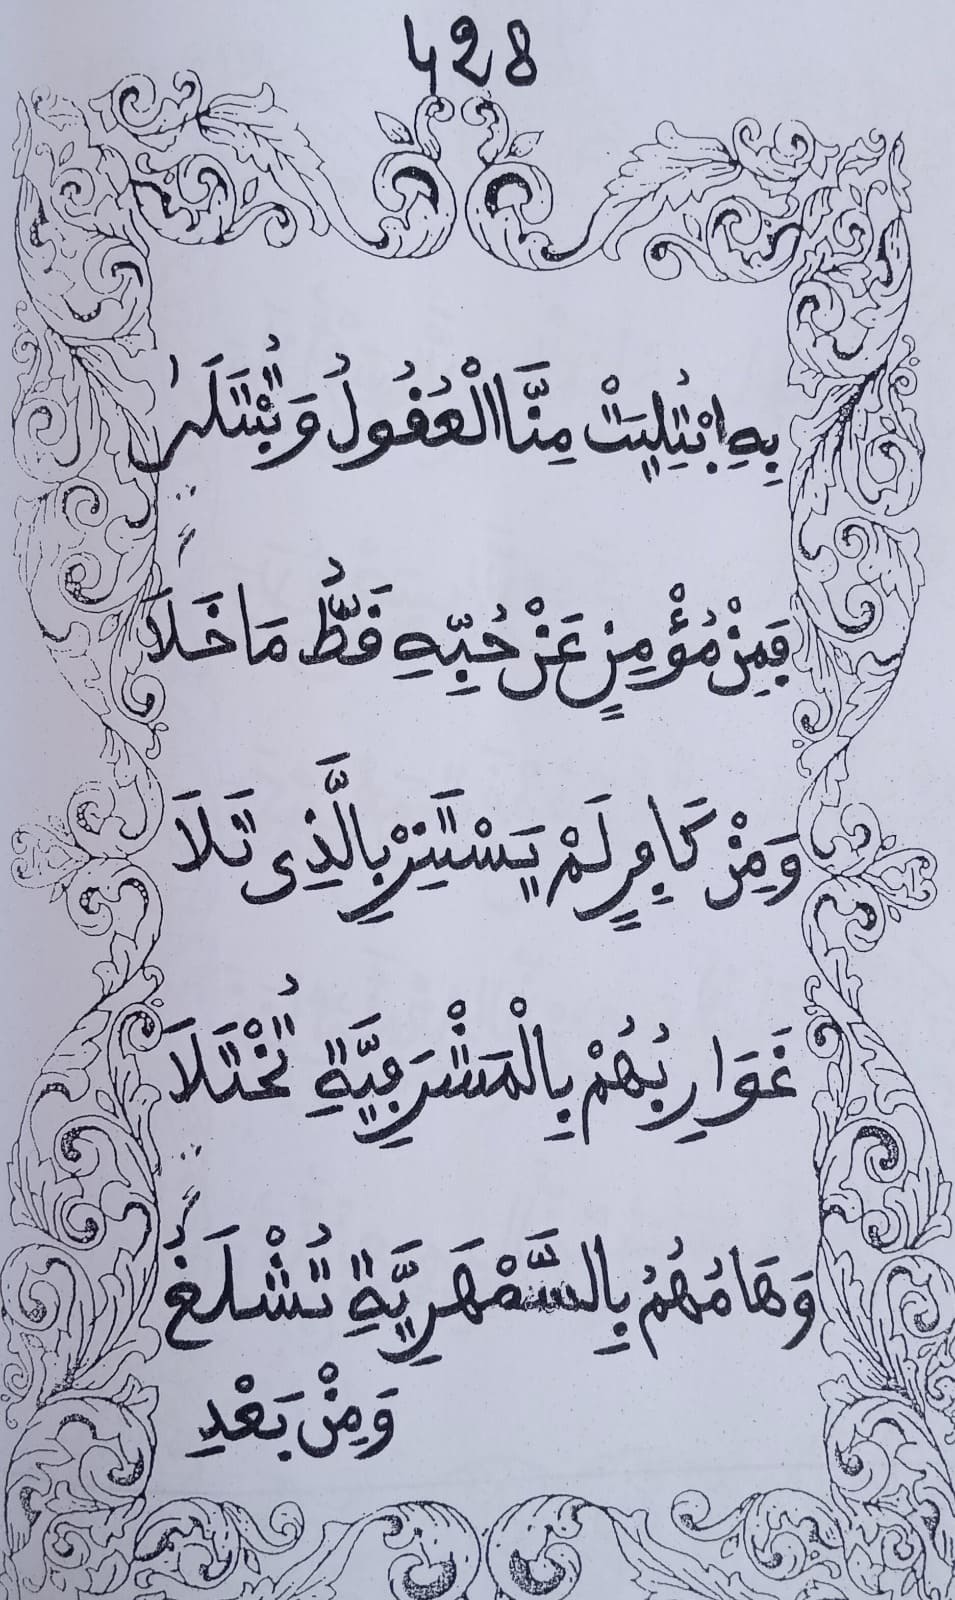 428
بِهِ ابْتُلِيَتْ مِنَّا الْعُقُولُ وَتُبْتَلَى
فَمِنْ مُؤْمِنٍ عَنْ حُبِّهِ قَطُّ مَا خَلَا
وَمِنْ كَافِرٍ لَمْ يَسْتَنِرْ بِالَّذِي تَلَا
غَوَارِبُهُمْ بِالْمَشْرَفِيَّةِ تُخْتَلَا
وَهَامُهُمُ بِالسَّمْهَرِيَّةِ تُشْلَغُ
وَمِنْ بَعْدِ